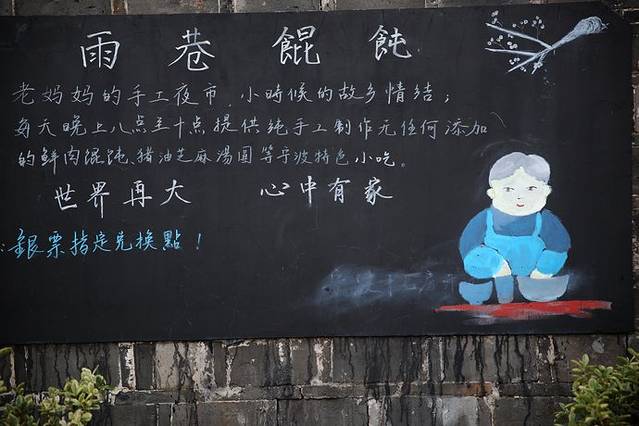 雨巷餛飩
老妈妈的手工夜市，小時候的故乡情结；
每天晚上八点至十点提供纯手工制作无任何添加
的鲜肉餛饨、猪油芝麻湯圆等宁波特色小吃。
世界再大 心中有家
銀票指定兑换點！